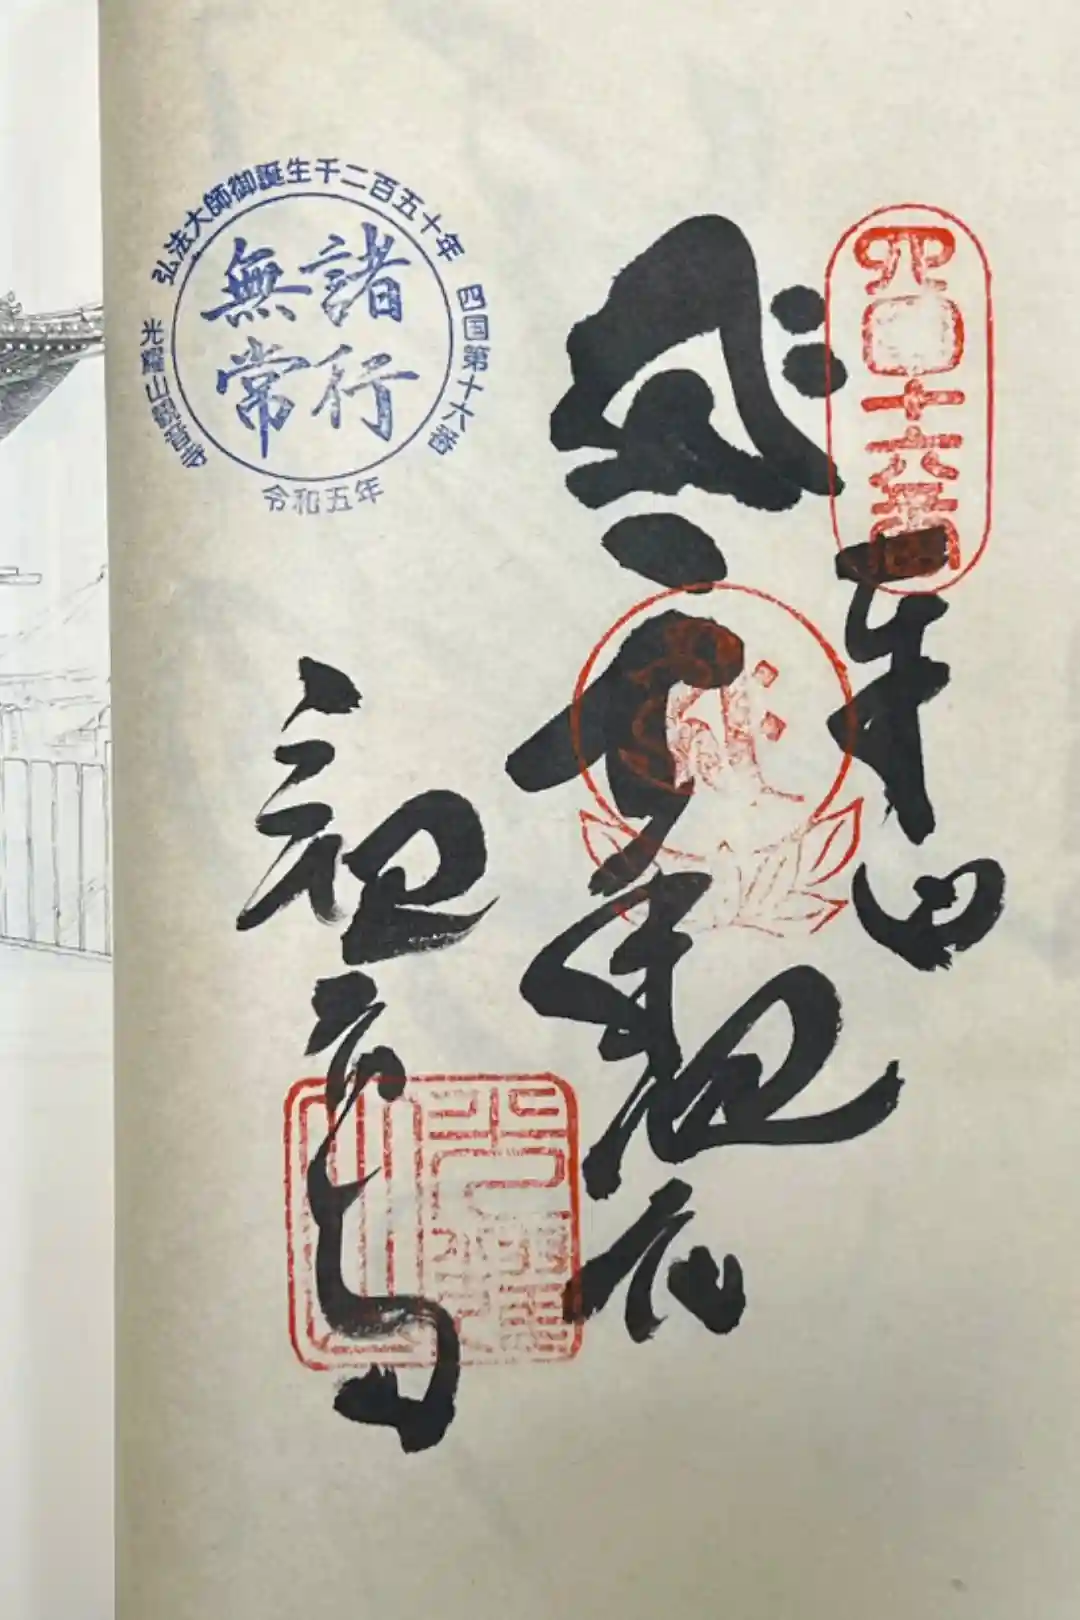 四国十六番
奉納
観音寺
弘法大師御誕生千二百五十年
四国第十六番
光耀山観音寺
諸行
無常
令和五年
光耀
山